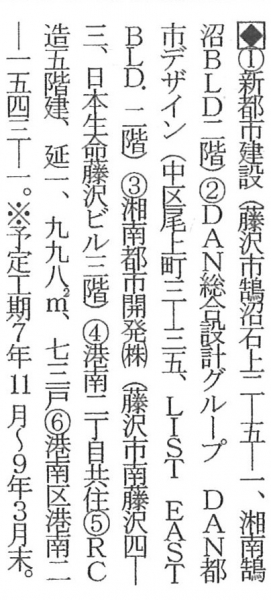 ◆①新都市建設（藤沢市鵠沼石上二―五―一、湘南鵠
沼ＢＬＤ二階）②ＤＡＮ総合設計グループ　ＤＡＮ都
市デザイン（中区尾上町三―三五、ＬＩＳＴ　ＥＡＳＴ
ＢＬＤ.二階）③湘南都市開発㈱（藤沢市南藤沢四―
三、日本生命藤沢ビル三階）④港南二丁目共住⑤ＲＣ
造五階建、延一、九九八㎡、七三戸⑥港南区港南二
―一五四三―一。※予定工期7年11月～9年3月末。